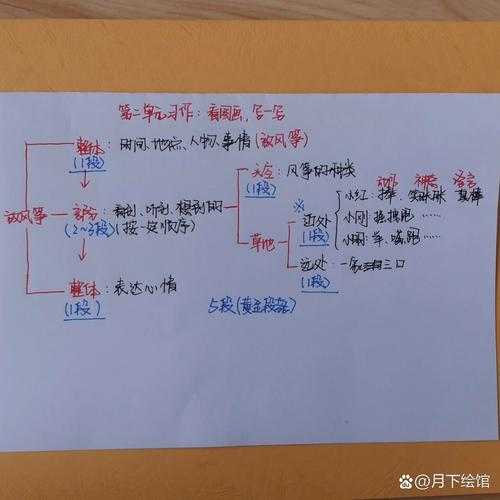 第二单元习作：看图画，写一写
整体：时间、地点、人物、事情(放风筝)
(1段)
放风筝
部分：看到、听到、想到的
(2~3段)(按一定顺序)
天空：风筝的种类
(1段)
草地
※
近处
(1段)
动作 神态 语言
小红：
小刚：
小丽：举、跑……
远处：一家三口
(1段)
整体：表达心情
(1段)
5段(黄金段落)
@月下绘馆